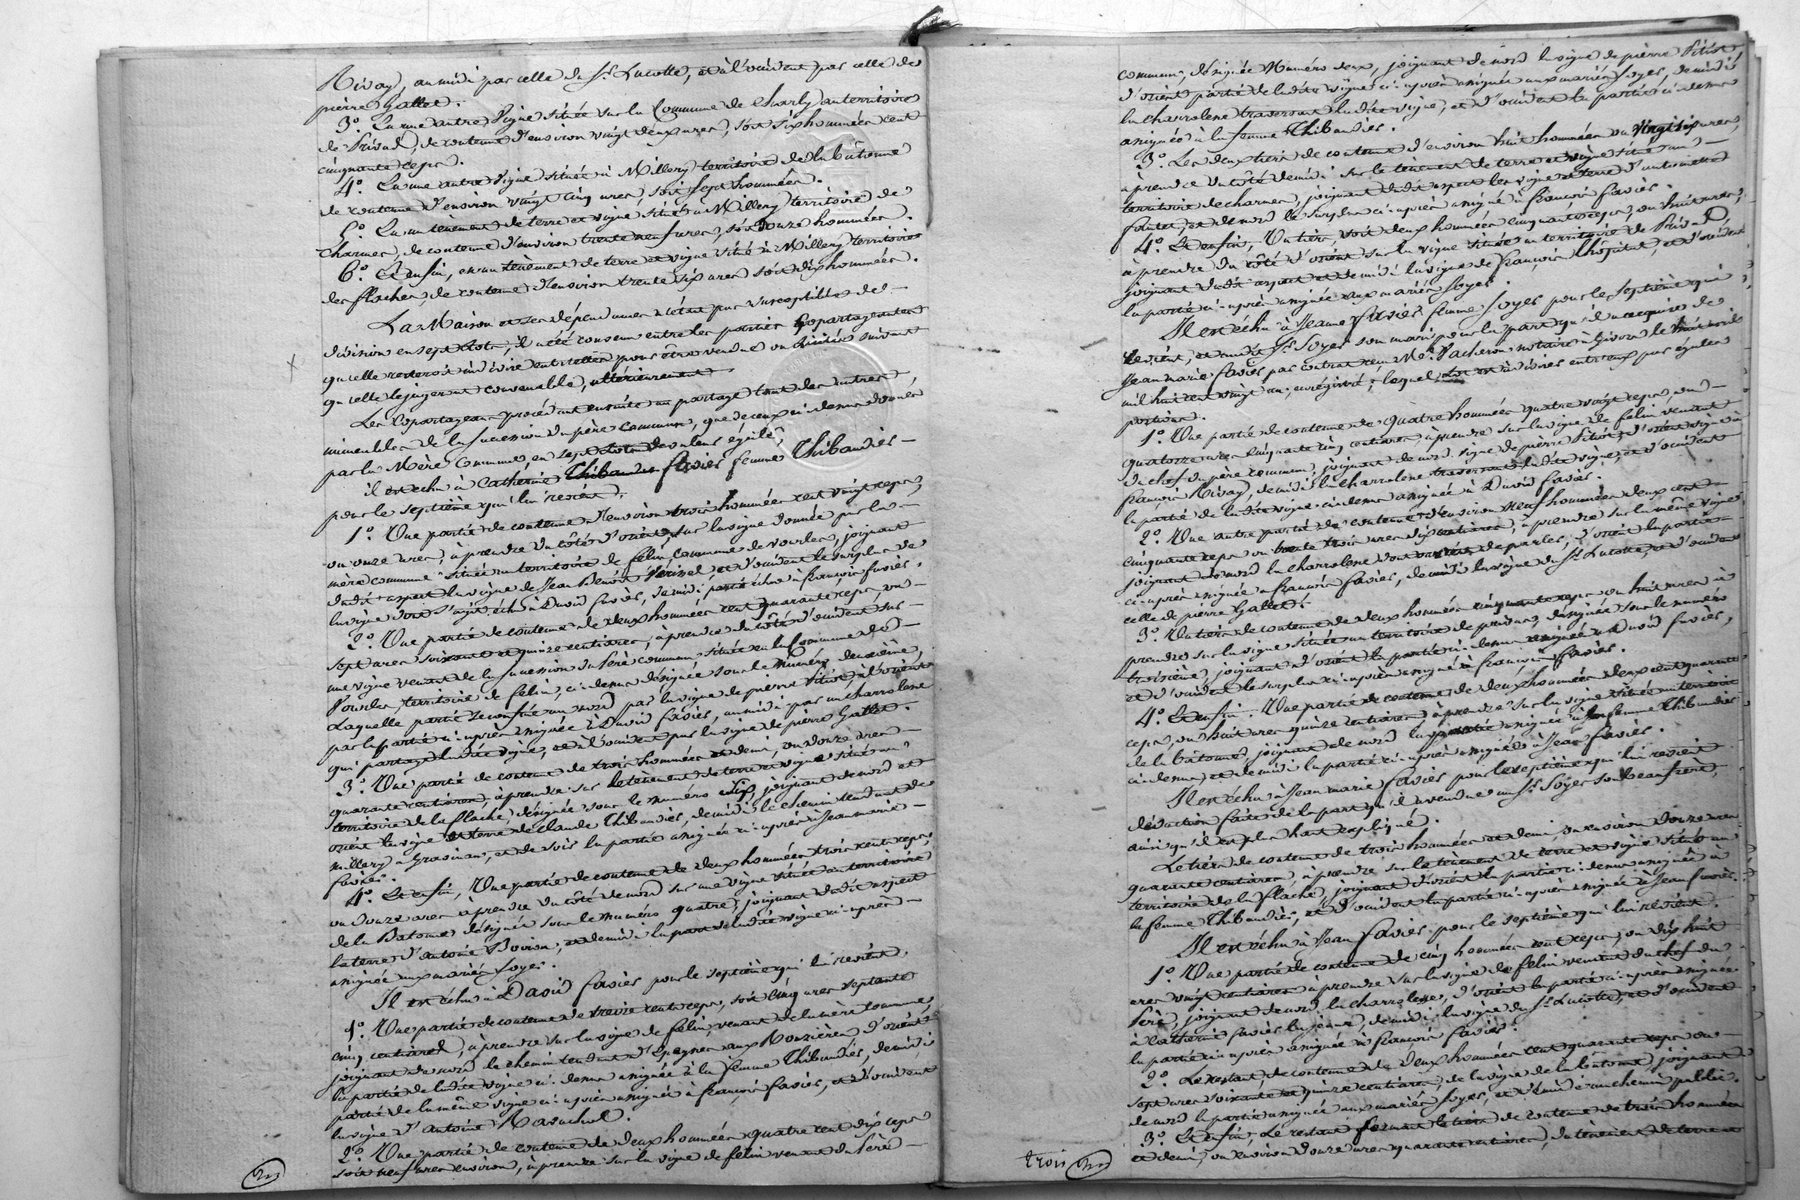 Rivay, au midi par celle du Sr. Lucotte, et à l'occident par celle de
pierre Gallet.
3.° La une autre Vigne située sur la Commune de Charly au territoire
de Privad, de contenue d'environ vingt deux ares, soit six hommées cent
cinquante ceps.
4.° La une autre Vigne située à Millery territoire de la bâtonne
de contenue d'environ vingt cinq ares, soit sept hommées.
5.° La un tènement de terre et vigne situé à Millery territoire de
Charmes, de contenue d'environ trente neuf ares, soit onze hommées.
6.° Et enfin, en un tènement de terre et vigne situé à Millery territoire
des flaches de contenue d'environ trente six ares soit dix hommées.
La Maison et ses dépendances n'étant pas susceptibles de
division en sept lots, il a été convenu entre les parties copartageantes
qu'elle resteroit indivise entr'elles pour être vendue ou licitée suivant
qu'elle le jugeront convenable, ultérieurement.
Les Copartageans procédant ensuite au partage tout des autres
immeubles de la succession du père commun, que de ceux ci-dessus donnés
par la Mère Commune, en sept lots de valeurs égale,
il est échu à Catherine favier femme Thibaudier
pour le septième qui lui revient.
1.° Une partie de contenue d'environ trois hommées cent vingt ceps,
ou onze ares, à prendre du côté d'orient sur la vigne donnée par la
mère commune située au territoire de félin Commune de Vourles, joignant
dudit aspect la vigne de Jean Benoit Vérinel et d'occident le surplus de
la vigne dont s'agit échu à David favier, de midi partie échue à françois favier.
2.° Une partie de contenue de deux hommées cent quarante ceps, ou
sept ares soixante et quinze centiares, à prendre du côté d'occident sur
une vigne venant de la succession du Père commun située en la Commune de
Vourles, territoire de félin, ci-dessus désignée sous le Numéro deuxième,
Laquelle partie se confine au nord par la vigne de pierre Pitiot, à l'orient
par la partie ci-après assignée à David favier, au midi par un charrolene
qui partage ladite vigne, et à l'occident par la vigne de pierre Gallet.
3.° Une partie de contenue de trois hommées et demi, ou douze ares
quarante centiares, à prendre sur le tènement de terre et vigne situé au
territoire de la flache, désignée sous le numéro six, joignant de nord et
orient la vigne et terre de claude Thibaudier, de midi le chemin tendant de
millery à Grosman, et de soir la partie assignée ci-après à Jean marie
favier.
4.° Et enfin, Une partie de contenue de deux hommées trois cent ceps,
ou douze ares à prendre du côté de nord sur une vigne située au territoire
de la Batonne désignée sous le numéro quatre, joignant dudit aspect
la terre d'antoine Boiron, et de midi la part de ladite vigne ci-après
assignée aux mariés Soyer.
Il est échu à David favier pour le septième qui lui revient.
1.° Une partie de contenue de treize cent ceps, soit cinq ares septante
cinq centiares, à prendre sur la vigne de félin venant de la mère commune,
joignant de nord le chemin tendant d'Epagner aux Mouzières, d'orient
la partie de ladite vigne ci-dessus assignée à la femme Thibaudier, de midi
partie de la même vigne ci-après assignée à françois favier, et d'occident
la vigne d'Antoine Maruchel.
2.° Une partie de contenue de deux hommées quatre cent dix ceps
soit neuf ares environ, à prendre sur la vigne de félin venant du Père
commun, désignée Numéro deux, joignant de nord la vigne de pierre Pitiot,
d'orient partie de ladite vigne ci-après assignée aux mariés Soyer, de midi
la charrolene traversant ladite vigne, et d'occident la partie ci-dessus
assignée à la femme Thibaudier.
3.° Les deux tiers de contenue d'environ huit hommées ou vingt six ares,
à prendre du côté de midi sur le tènement de terre et vigne situé au
territoire de charmes, joignant dudit aspect les vigne et terre d'antoinette
, et de nord le surplus ci-après assigné à françois favier.
4.° Et enfin, Un tiers, soit deux hommées cinquante ceps, ou huit ares,
à prendre du côté d'orient sur la vigne située au territoire de Privad,
joignant dudit aspect et de midi la vigne de françois , et d'occident
la partie ci-après assignée aux mariés Soyer.
Il est échu à Jeanne favier femme Soyer pour le septième qui
lui revient, et audit Sr. Soyer son mari pour la part qu'il a acquise de
Jean marie favier par contrat reçu Me. Vacheron notaire à Givors le huit avril
mil huit cent vingt un, enregistré; lequel lot est indivisé entr'eux par égales
portions.
1.° Une partie de contenue de quatre hommées quatre vingt ceps, ou
quatorze ares cinquante cinq centiares à prendre sur la vigne de félin venant
du chef du père commun, joignant de nord vigne de pierre Pitiot, d'orient vigne de
françois Rivay, de midi la charrolene traversant ladite vigne, et d'occident
la partie de ladite vigne ci-dessus assignée à David favier.
2.° Une autre partie de contenue d'environ neuf hommées deux cent
cinquante ceps ou trente trois ares dix centiares, à prendre sur la même vigne
joignant de nord la charrolene dont on vient de parler, d'orient la partie
ci-après assignée à françois favier, de midi la vigne du Sr. Lucotte, et d'occident
celle de pierre Gallet.
3.° Un tiers de contenue de deux hommées cinquante ceps ou huit ares à
prendre sur la vigne située au territoire de privad, désignée sous le numéro
troisième, joignant d'orient la partie ci-dessus assignée à David favier,
et d'occident le surplus ci-après assigné à françois favier.
4.° Et enfin. Une partie de contenue de deux hommées deux cent quarante
ceps, ou huit ares quinze centiares à prendre sur la vigne située au territoire
de la bâtonne, joignant de nord la partie assignée à la femme Thibaudier
ci-dessus, et de midi la partie ci-après assignée à Jean favier.
Il est échu à Jean marie favier pour le septième qui lui revient
déduction faite de la part qu'il a vendue au Sr. Soyer son beau frère,
ainsi qu'il est plus haut expliqué.
Le tiers de contenue de trois hommées et demi, ou environ douze ares
quarante centiares, à prendre sur le tènement de terre et vigne situé au
territoire de la flache, joignant d'orient la partie ci-dessus assignée à
la femme Thibaudier, et d'occident la partie ci-après assignée à Jean favier.
Il est échu à Jean favier pour le septième qui lui revient.
1.° Une partie de contenue de cinq hommées cent ceps, ou dix huit
ares vingt centiares à prendre sur la vigne de félin venant du chef du
Père, joignant de nord la charrolene, d'orient la partie ci-après assignée
à catherine favier la jeune, de midi la vigne du Sr. Lucotte, et d'occident
la partie ci-après assignée à françois favier.
2.° Le restant, de contenue de deux hommées cent quarante ceps ou
sept ares soixante et quinze centiares, de la vigne de la bâtonne, joignant
de nord la partie assignée aux mariés Soyer, et d'midi un chemin public.
3.° Et enfin, Le restant formant le tiers de contenue de trois hommées
et demi, ou environ douze ares quarante centiares, du tènement de terre et
trois